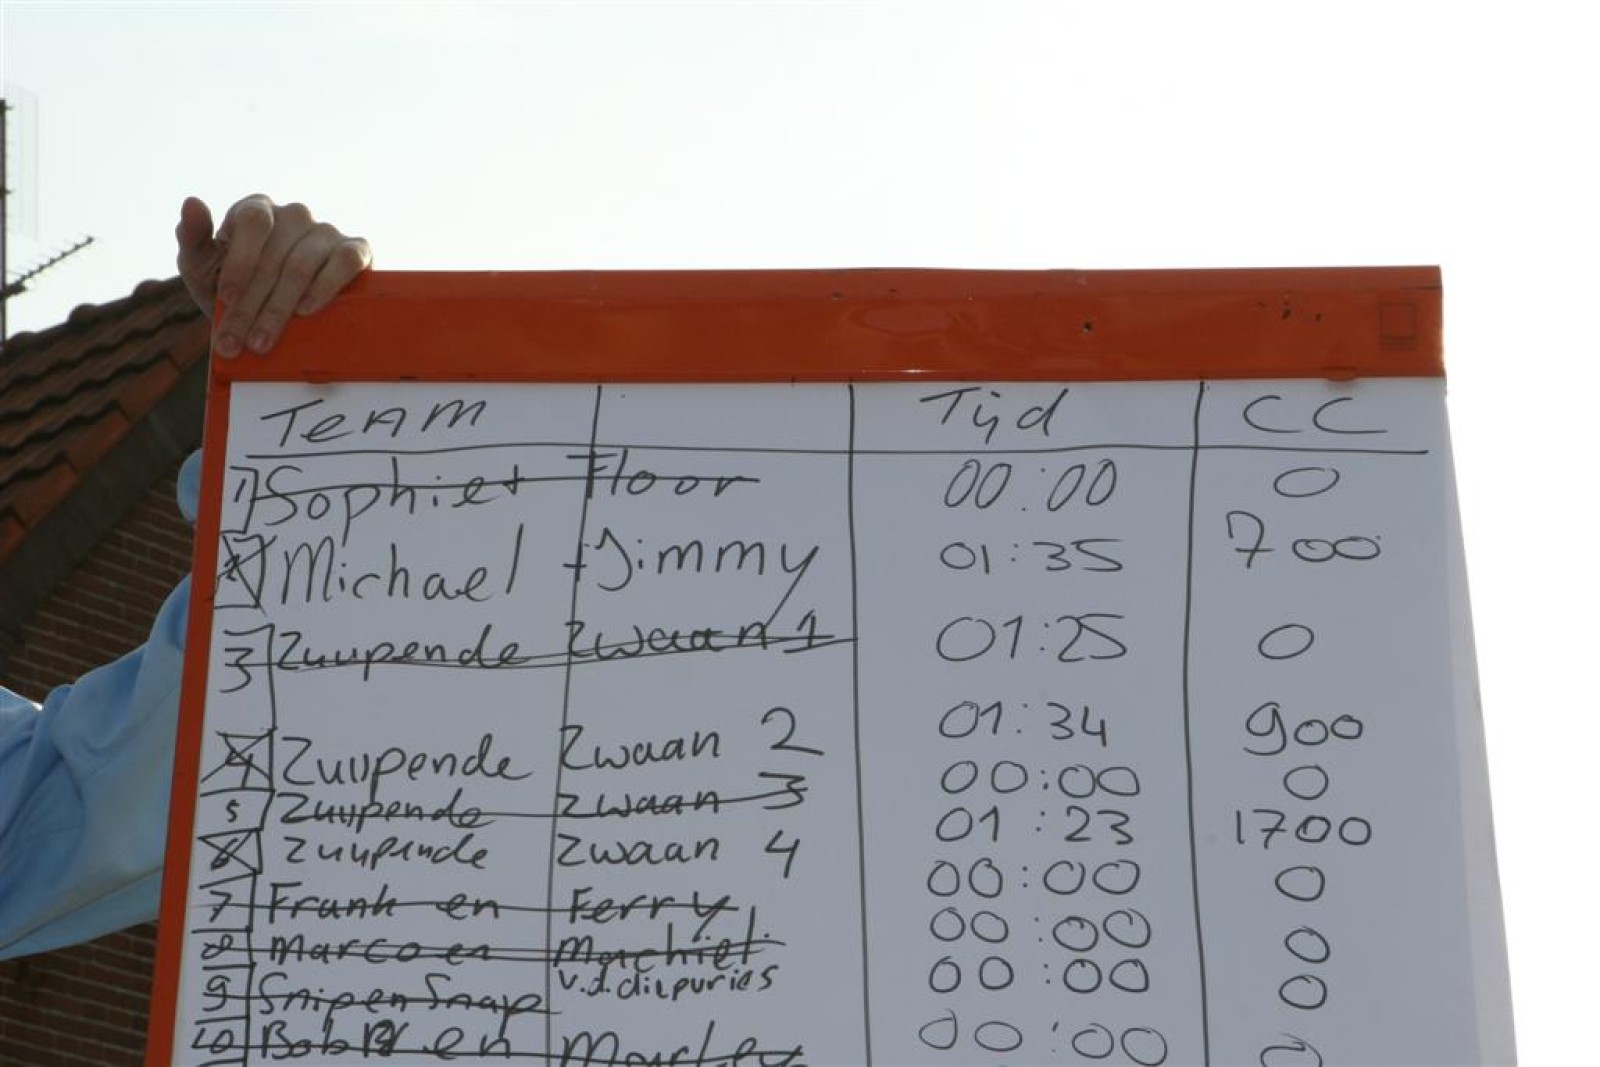 Team Tijd CC
1 Sophie + Floor 00:00 0
2 Michael + Jimmy 01:35 700
3 Zuipende Zwaan 1 01:25 0
4 Zuipende Zwaan 2 01:34 900
5 Zuipende Zwaan 3 00:00 0
6 Zuipende Zwaan 4 01:23 1700
7 Frank en Ferry 00:00 0
8 Marco en Machiel 00:00 0
9 Snip en Snap v.d. 00:00 0
10 Bob en Marley 00:00 0